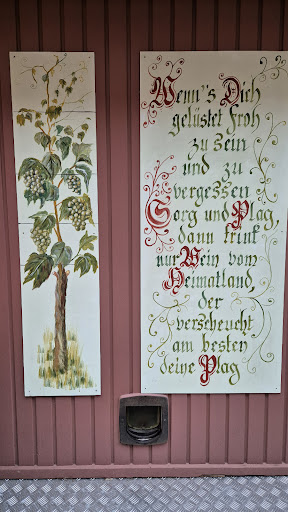 Wenn's Dich
gelüstet froh
zu sein
und zu
vergessen
Sorg und Plag,
dann trink
nur Wein vom
Heimatland,
der
verscheucht
am besten
deine Plag